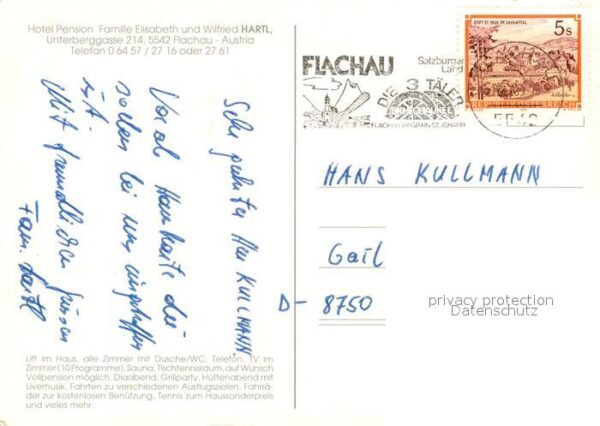 Hotel Pension Familie Elisabeth und Wilfried HARTL,
Unterberggasse 214, 5542 Flachau - Austria
Telefon 0 64 57 / 27 16 oder 27 61
Sehr geehrter Herr KULLMANN.
Vorab Hauskarte die
sollen bei uns eingetroffen
Mit freundlichen Grüssen
Fam. Hartl
Lift im Haus, alle Zimmer mit Dusche/WC, Telefon, TV im
Zimmer (10 Programme), Sauna, Tischtennisraum, auf Wunsch
Vollpension möglich. Diaabend, Grillparty, Hüttenabend mit
Livemusik. Fahrten zu verschiedenen Ausflugszielen. Fahrrä-
der zur kostenlosen Benützung. Tennis zum Haussonderpreis
und vieles mehr.
FLACHAU
Salzburger
Land
DIE 3 TÄLER
FLACHAU WAGRAIN ST. JOHANN
STIFT ST. PAUL IM LAVANTTAL
5s
REPUBLIK ÖSTERREICH
5542
HANS KULLMANN
Gail
D- 8750
privacy protection
Datenschutz